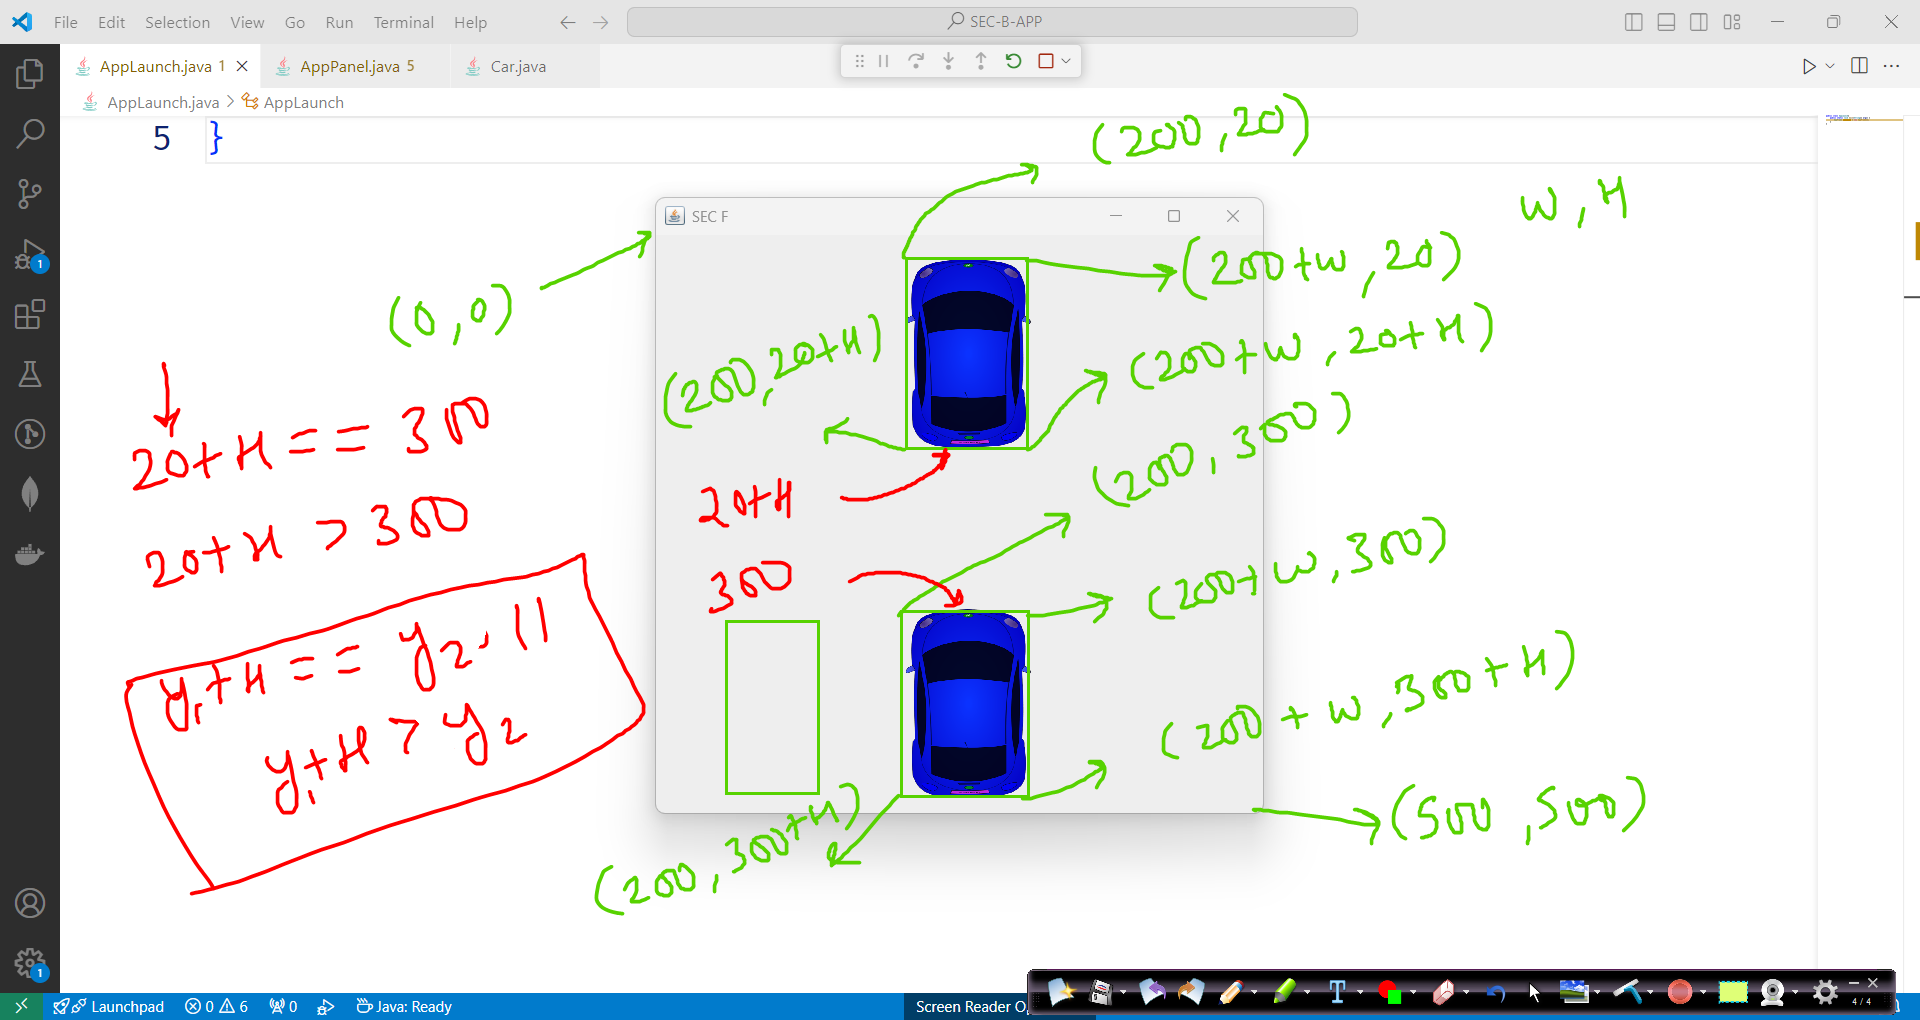 File Edit Selection View Go Run Terminal Help
SEC-B-APP
AppLaunch.java 1
AppPanel.java 5
Car.java
AppLaunch.java > AppLaunch
5 }
(200,20)
W,H
SEC F
(200+W,20)
(0,0)
(200,20+H)
(200+W,20+H)
(200,300)
20+H == 300
20+H
20+H > 300
300
(200+W,300)
y1+H == y2 ||
y1+H > y2
(200+W,300+H)
(500,500)
(200,300+H)
1
1
Launchpad 0 6 0 Java: Ready
Screen Reader O
4/4